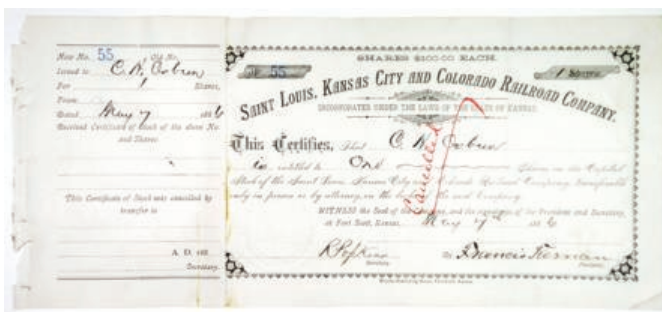 New No. 55 Old No.
Issued to C. W. Osburn
For 1 Shares,
From
Dated May 7 1886
Received Certificate of Stock of the above No.
and Shares
This Certificate of Stock was cancelled by
transfer to
A. D. 188
Secretary.
SHARES $100.00 EACH.
No. 55
1 Shares
SAINT LOUIS, KANSAS CITY AND COLORADO RAILROAD COMPANY.
INCORPORATED UNDER THE LAWS OF THE STATE OF KANSAS.
This Certifies, That C. W. Osburn
is entitled to One Shares in the Capital
Stock of the Saint Louis, Kansas City and Colorado Railroad Company, transferable
only in person or by attorney, on the said Company.
WITNESS the Seal of the Company, and the signatures of the President and Secretary,
at Fort Scott, Kansas, May 7th 1886
Secretary.
Francis Tiernan
President.
Cancelled